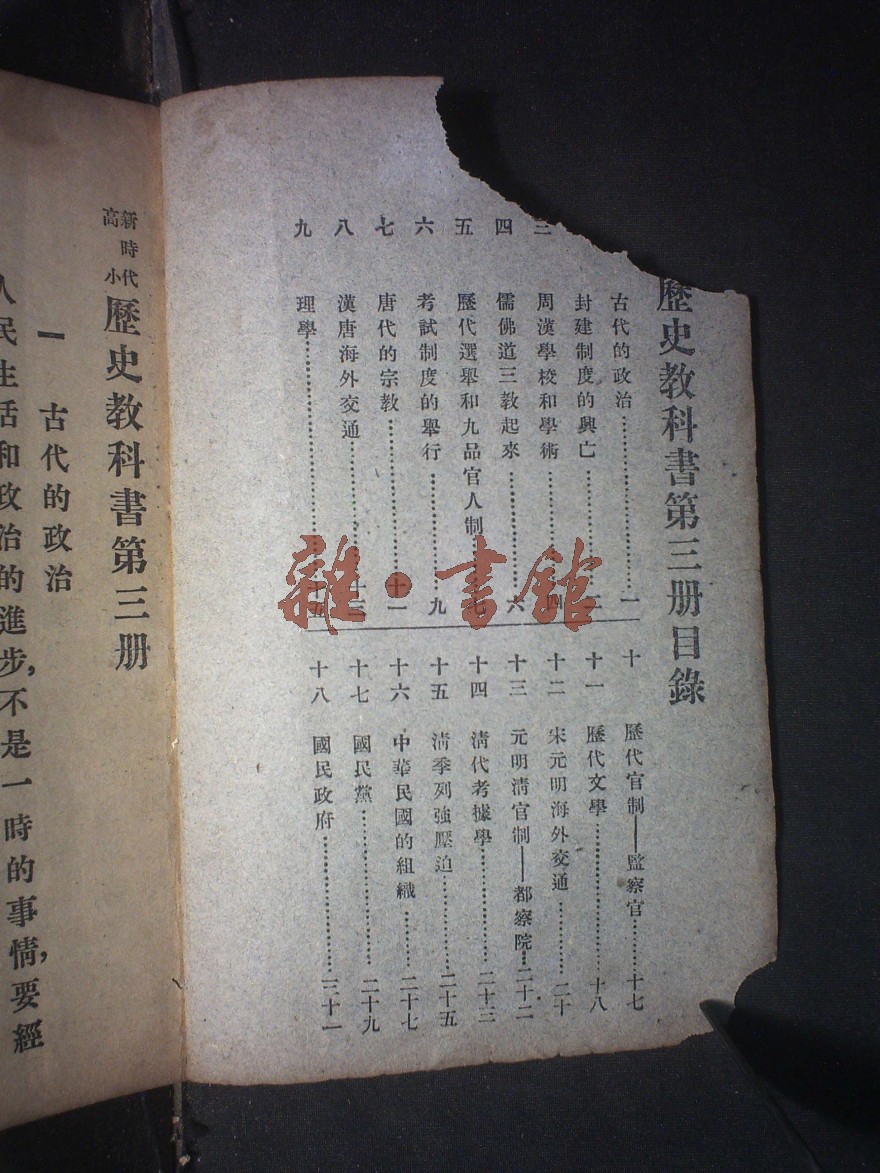 歷史教科書第三册目錄
古代的政治⋯⋯一
封建制度的興亡⋯⋯二
三 周漢學校和學術⋯⋯四
四 儒佛道三教起來⋯⋯六
五 歷代選舉和九品官人制⋯⋯七
六 考試制度的舉行⋯⋯九
七 唐代的宗教⋯⋯十一
八 漢唐海外交通⋯⋯十三
九 理學⋯⋯十五
十 歷代官制——監察官⋯⋯十七
十一 歷代文學⋯⋯十八
十二 宋元明海外交通⋯⋯二十
十三 元明清官制——都察院⋯⋯二十二
十四 清代考據學⋯⋯二十三
十五 清季列強壓迫⋯⋯二十五
十六 中華民國的組織⋯⋯二十七
十七 國民黨⋯⋯二十九
十八 國民政府⋯⋯三十一
新時代高小歷史教科書第三册
一 古代的政治
人民生活和政治的進步,不是一時的事情,要經
雜·書館